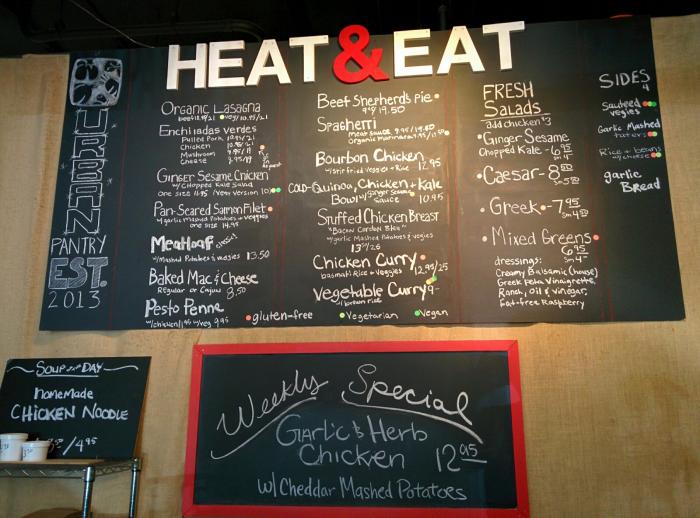 HEAT & EAT
URBAN
PANTRY
EST.
2013
Organic Lasagna
Enchiladas verdes
Pulled Pork
Chicken
Mushroom
Cheese
Ginger Sesame Chicken
w/Chopped Kale Salad
one size
Pan-Seared Salmon Filet
w/garlic Mashed Potatoes + veggies
one size 14.95
Meatloaf
w/Mashed Potatoes & veggies 13.50
Baked Mac & Cheese
Regular or Cajun 8.50
Pesto Penne
Beef Shepherd's Pie
Spaghetti
Meat sauce
Organic Marinara
Bourbon Chicken
w/stir fried veggies + Rice 12.95
COLD-Quinoa, Chicken + Kale
Bowl w/Ginger Sesame
Sauce 10.95
Stuffed Chicken Breast
"Bacon Cordon Bleu"
w/garlic Mashed Potatoes & veggies
Chicken Curry
basmati Rice + Veggies 12.95/25
Vegetable Curry 9-
w/brown rice
gluten-free
Vegetarian
Vegan
FRESH
Salads
add chicken $3
Ginger Sesame
Chopped Kale - 6.95
Caesar - 8.50
Greek - 7.95
Mixed Greens
6.95
sm 4-
dressings:
Creamy Balsamic (house)
Greek Feta Vinaigrette,
Ranch, Oil & Vinegar,
Fat-free Raspberry
SIDES
4
Sauteed
veggies
Garlic Mashed
Potatoes
Rice + beans
w/cheese
garlic
Bread
Soup of the Day
homemade
CHICKEN NOODLE
/4.95
Weekly Special
Garlic & Herb
Chicken 12.95
w/ Cheddar Mashed Potatoes